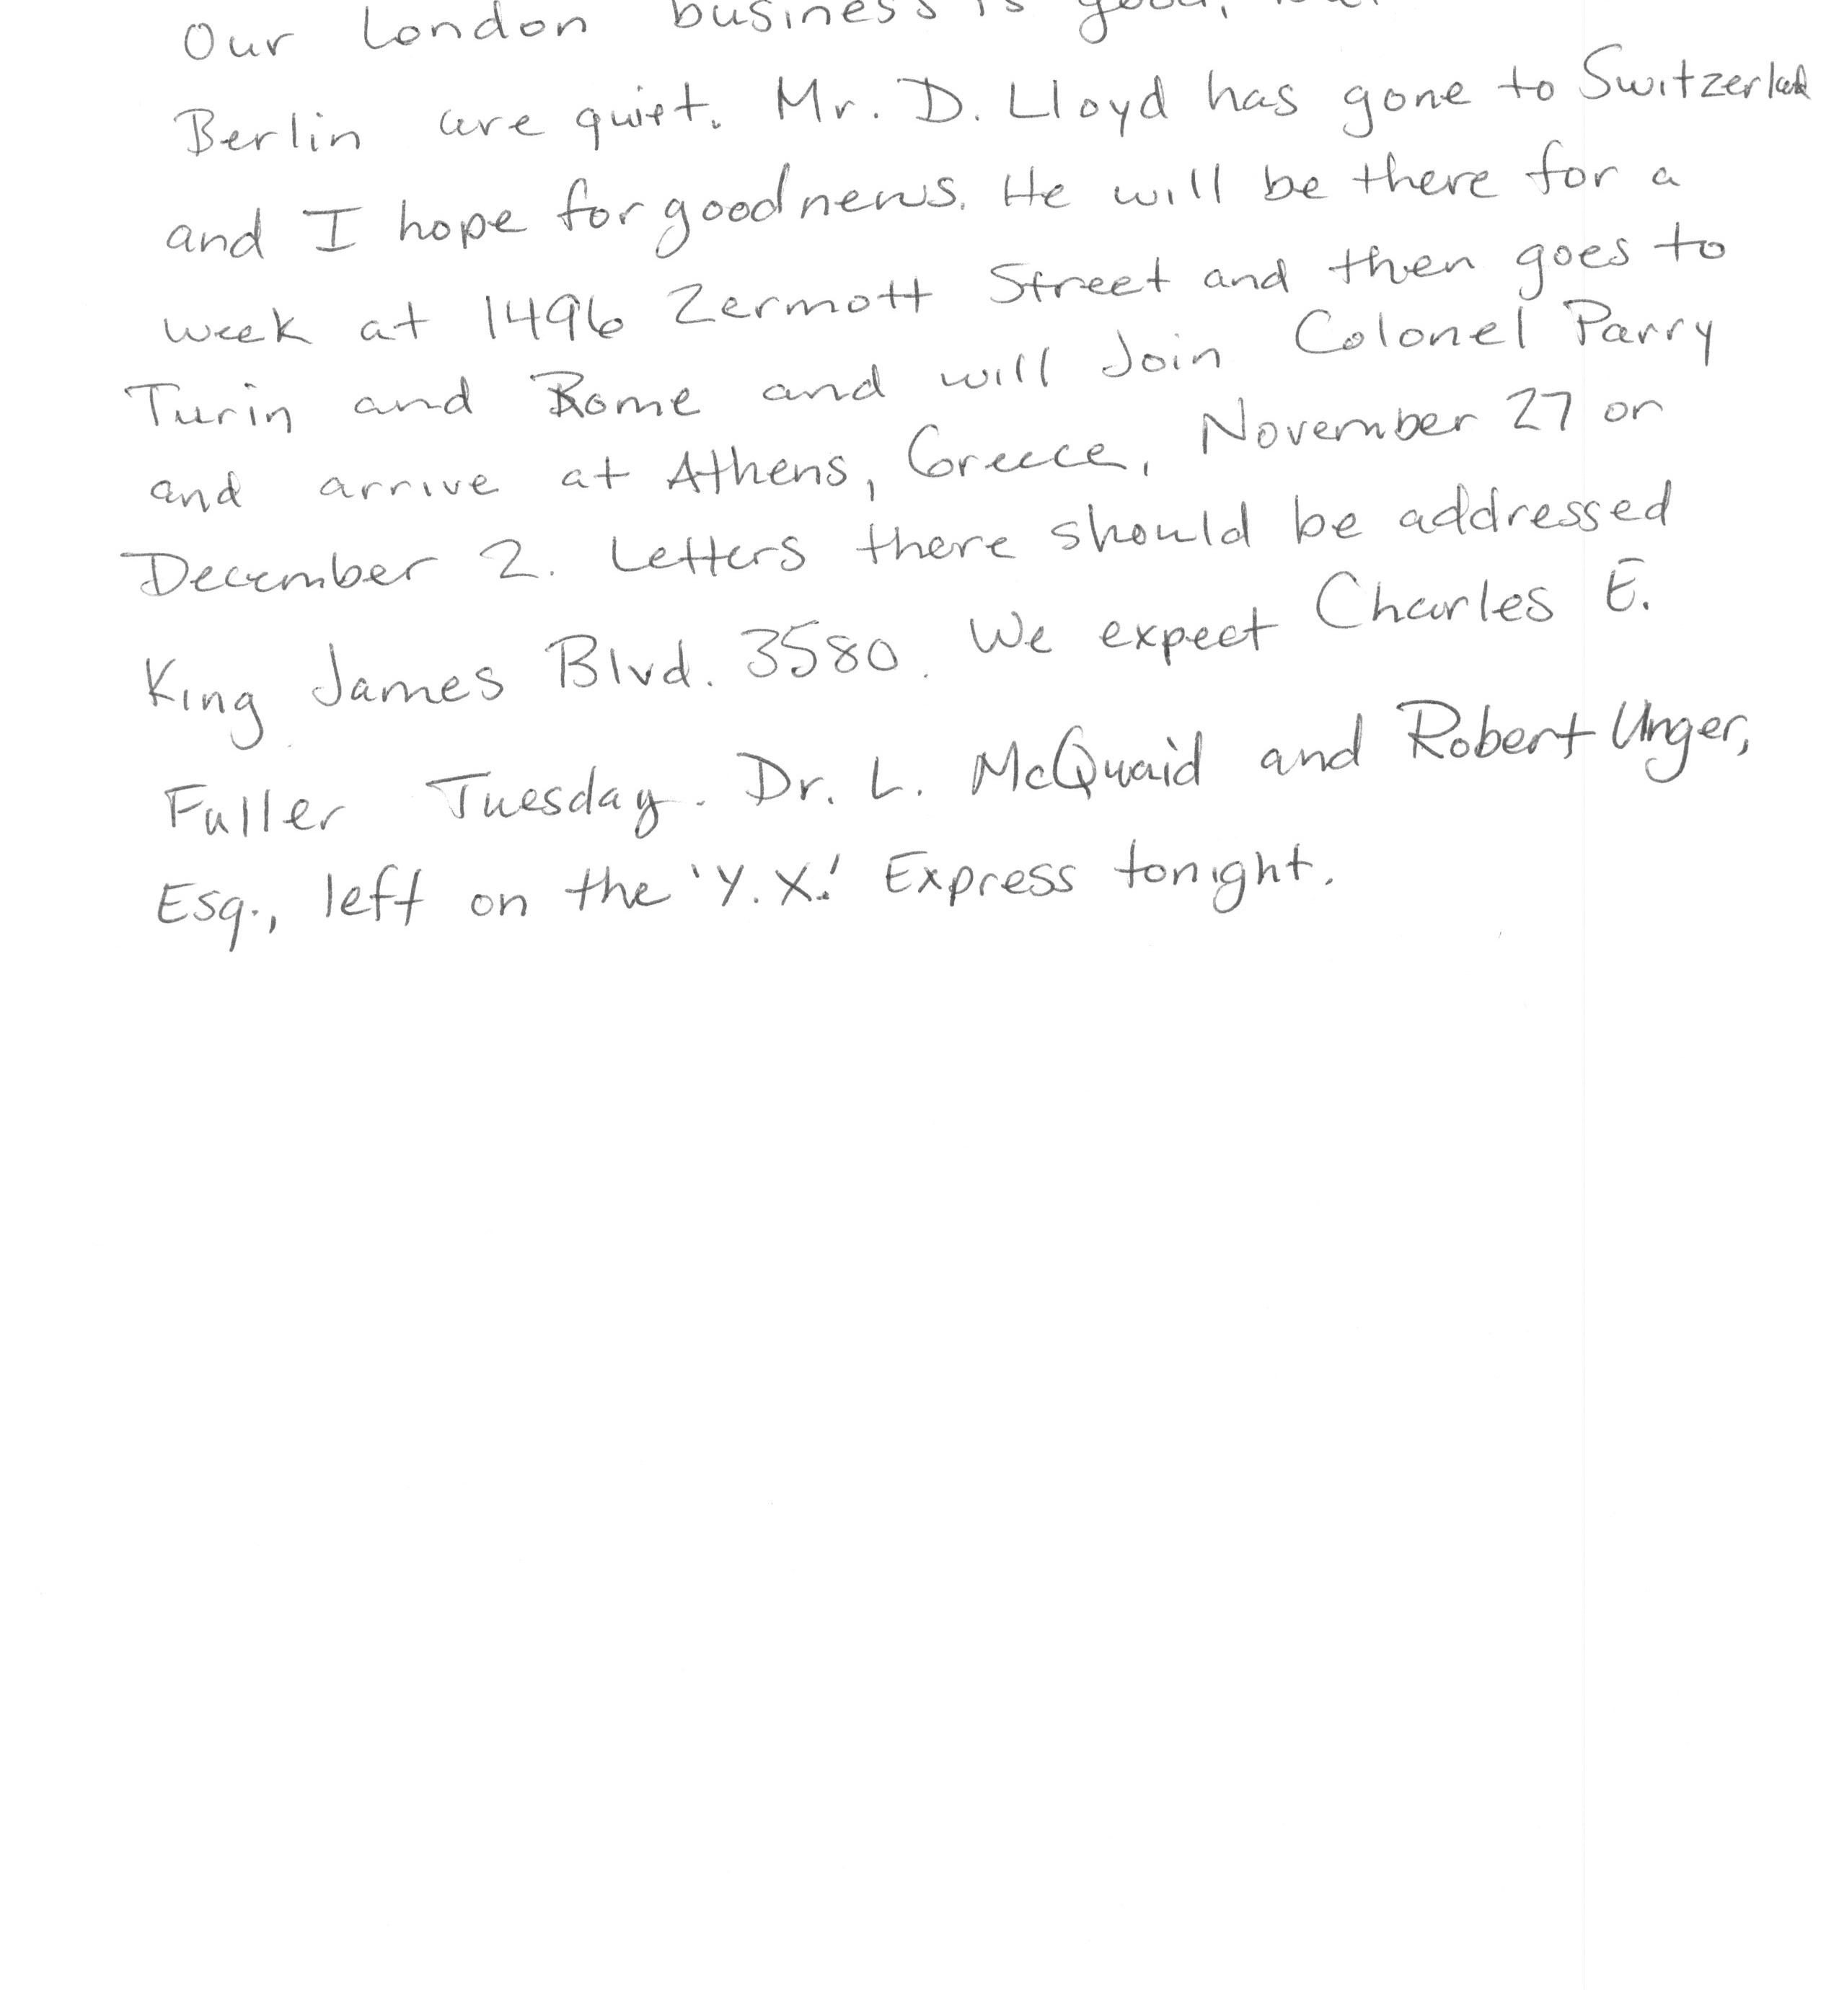 Our London business is good,
Berlin are quiet. Mr. D. Lloyd has gone to Switzerland
and I hope for good news. He will be there for a
week at 1496 Zermott Street and then goes to
Turin and Rome and will Join Colonel Parry
and arrive at Athens, Greece, November 27 or
December 2. Letters there should be addressed
King James Blvd. 3580. We expect Charles E.
Fuller Tuesday. Dr. L. McQuaid and Robert Unger,
Esq., left on the 'Y.X.' Express tonight.